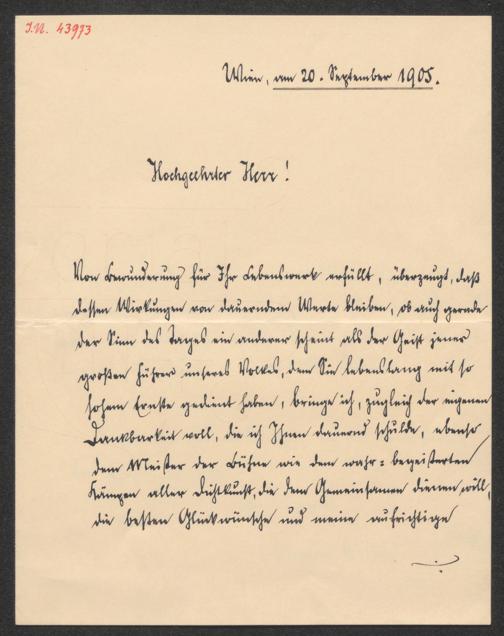 I.N. 43973
Wien, am 20. September 1905.
Hochgeehrter Herr!
Von Bewunderung für Ihr Lebenswerk erfüllt, überzeugt, daß
dessen Wirkungen von dauerndem Werte bleiben, ob auch gerade
der Sinn des Tages ein anderer scheint als der Geist jener
großen Führer unseres Volkes, dem Sie lebenslang mit so
hohem Ernste gedient haben, bringe ich, zugleich der eigenen
Dankbarkeit voll, die ich Ihnen dauernd schulde, ebenso
dem Meister der Bühne wie dem wahr-begeisterten
Kämpen aller Dichtkunst, die dem Gemeinsamen dienen will,
die besten Glückwünsche und meine aufrichtige